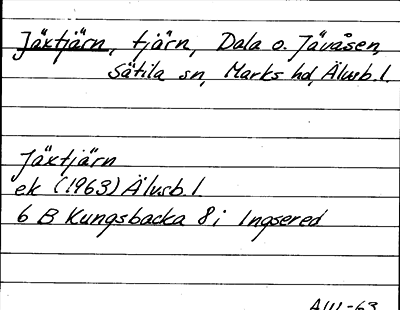 Jäxtjärn, tjärn, Dala o. Jävåsen,
Sätila sn, Marks hd, Älvsb. l.
Jäxtjärn
ek (1963) Älvsb. l
6 B Kungsbacka 8 i Ingsered